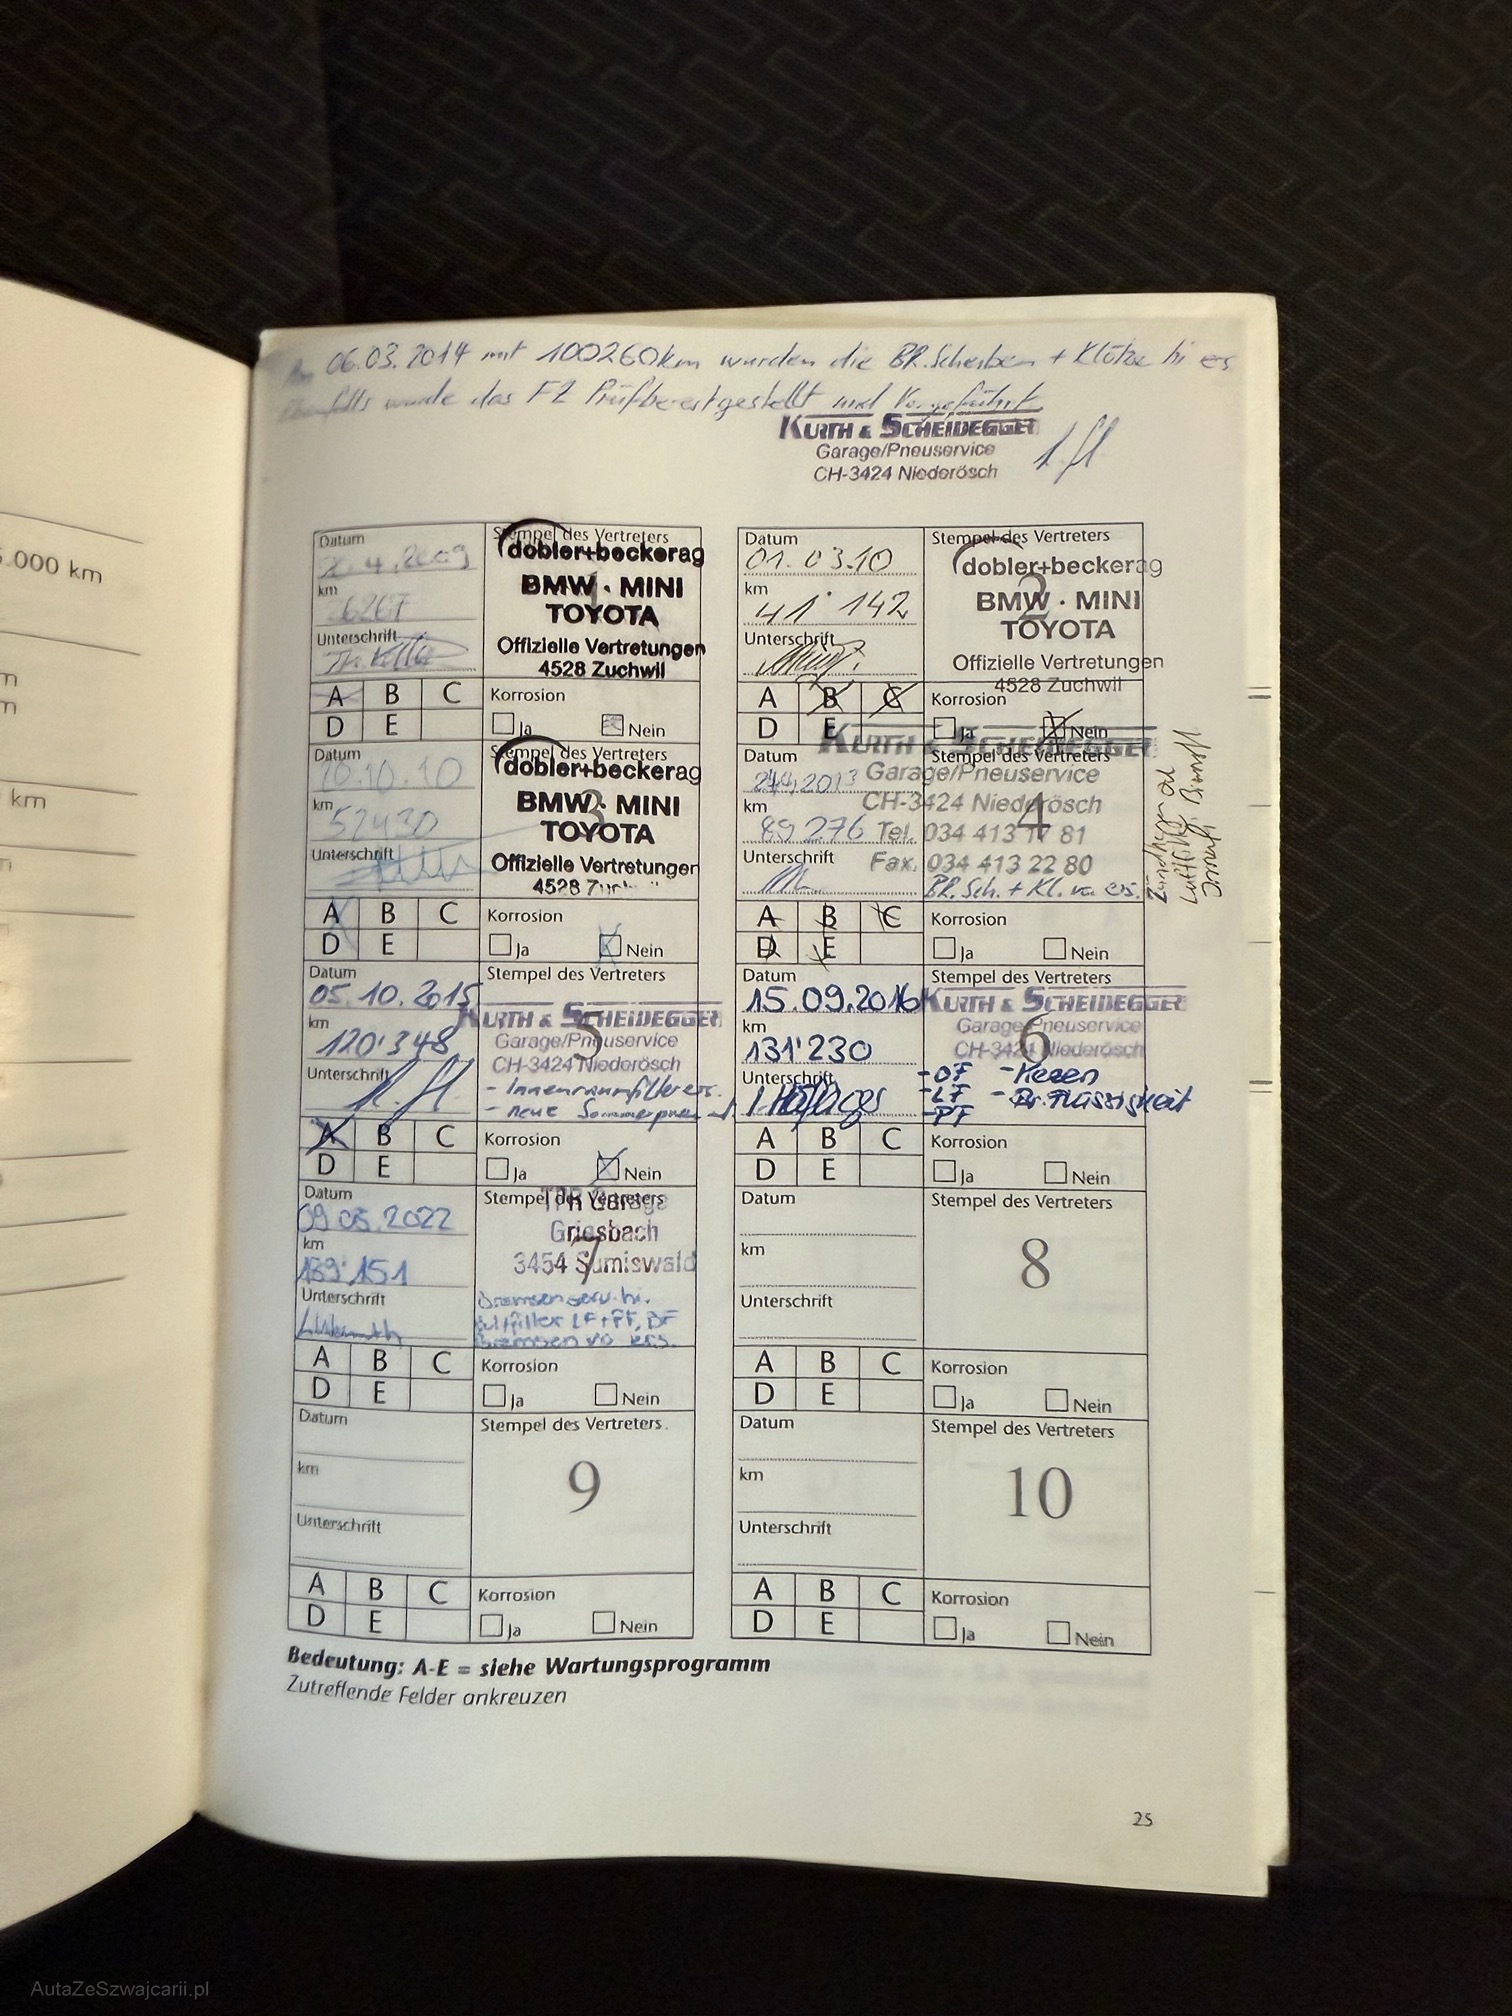 06.03.2014 mit 100260km wurden die BR.Scheiben + Klötze hi es
wurde das FZ Prüfbereitgestellt und Vorgeführt
KURTH & SCHEIDEGGER
Garage/Pneuservice
CH-3424 Niederösch
5.000 km
m
m
km
Datum
.4.2009
km
6267
Unterschrift
Stempel des Vertreters
dobler+beckerag
1
BMW · MINI
TOYOTA
Offizielle Vertretungen
4528 Zuchwil
A B C
D E
Korrosion
Ja Nein
Datum
01.03.10
km
41'142
Unterschrift
Stempel des Vertreters
dobler+beckerag
2
BMW · MINI
TOYOTA
Offizielle Vertretungen
4528 Zuchwil
A B C
D E
Korrosion
Ja Nein
Datum
10.10
km
52430
Unterschrift
Stempel des Vertreters
dobler+beckerag
3
BMW · MINI
TOYOTA
Offizielle Vertretungen
4528
A B C
D E
Korrosion
Ja Nein
Datum
2013
km
89276
Unterschrift
Stempel des Vertreters
4
KURTH & SCHEIDEGGER
Garage/Pneuservice
CH-3424 Niederösch
Tel. 034 413 17 81
Fax. 034 413 22 80
BR.Sch. + Kl. va ers.
A B C
D E
Korrosion
Ja Nein
Datum
05.10.2015
km
120'348
Unterschrift
Stempel des Vertreters
5
KURTH & SCHEIDEGGER
Garage/Pneuservice
CH-3424 Niederösch
- Innenraumfilter ers.
- neue
A B C
D E
Korrosion
Ja Nein
Datum
15.09.2016
km
131'230
Unterschrift
Stempel des Vertreters
6
KURTH & SCHEIDEGGER
Garage/Pneuservice
CH-3424 Niederösch
-OF
-LF - Br.Flüssigkeit
-PF
A B C
D E
Korrosion
Ja Nein
Datum
09.05.2022
km
151
Unterschrift
Stempel des Vertreters
7
TPR Garage
Griesbach
3454 Sumiswald
Bremsenserv. hi.
LF+PF,
Bremsen vo ers.
A B C
D E
Korrosion
Ja Nein
Datum
km
Unterschrift
Stempel des Vertreters
8
A B C
D E
Korrosion
Ja Nein
Datum
km
Unterschrift
Stempel des Vertreters
9
A B C
D E
Korrosion
Ja Nein
Datum
km
Unterschrift
Stempel des Vertreters
10
A B C
D E
Korrosion
Ja Nein
Bedeutung: A-E = siehe Wartungsprogramm
Zutreffende Felder ankreuzen
25
AutaZeSzwajcarii.pl